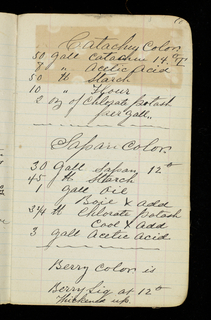 Catachu Color
50 Gall Catachu 14 °T
7 " Acetic Acid
50 lb Starch
10 " Flour
2 oz of Chlorate Potash
per gall.
Sapan Color
30 Gall Sapan 12°
45 lb Starch
1 gall Oil
Boil & add
3/4 lb Chlorate Potash
Cool & Add
3 gall Acetic Acid
Berry Color is
Berry Liq at 12°
thickened up.